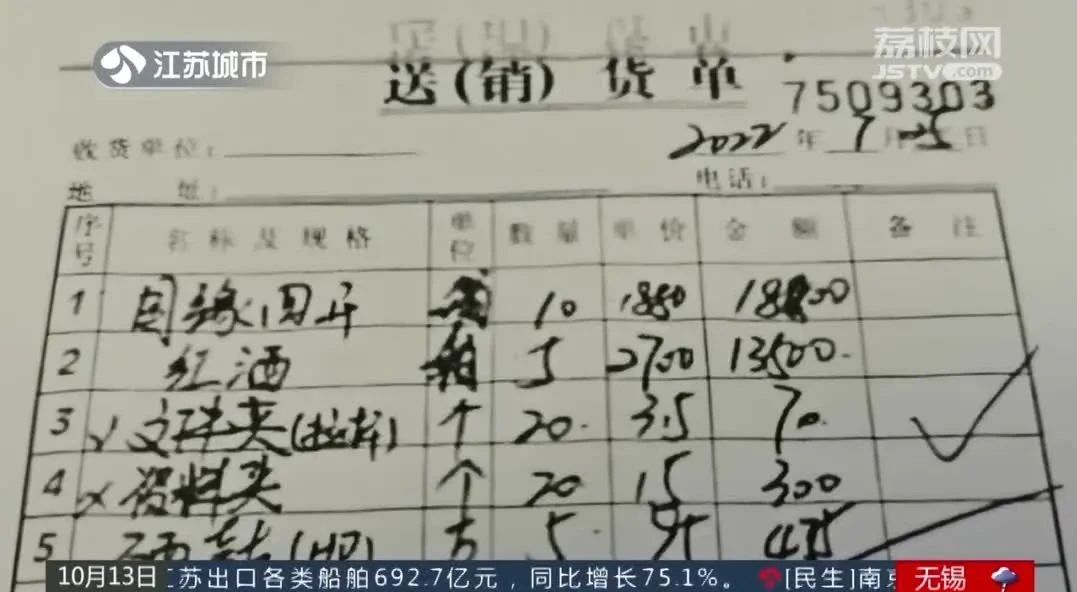 江苏城市
荔枝网
JSTV.com
送(销)货单
7509303
收货单位：
2022年7月25日
地 址：
电话：
序号 名称及规格 单位 数量 单价 金额 备注
1 国缘四开 10 1880 18800
2 红酒 箱 5 2700 13500
3 √ 文件夹(拉杆) 个 20 3.5 70
4 × 资料夹 个 20 15 300
5 硒鼓(HP) 5 95 475
10月13日 江苏出口各类船舶692.7亿元，同比增长75.1%。 [民生]南京
无锡